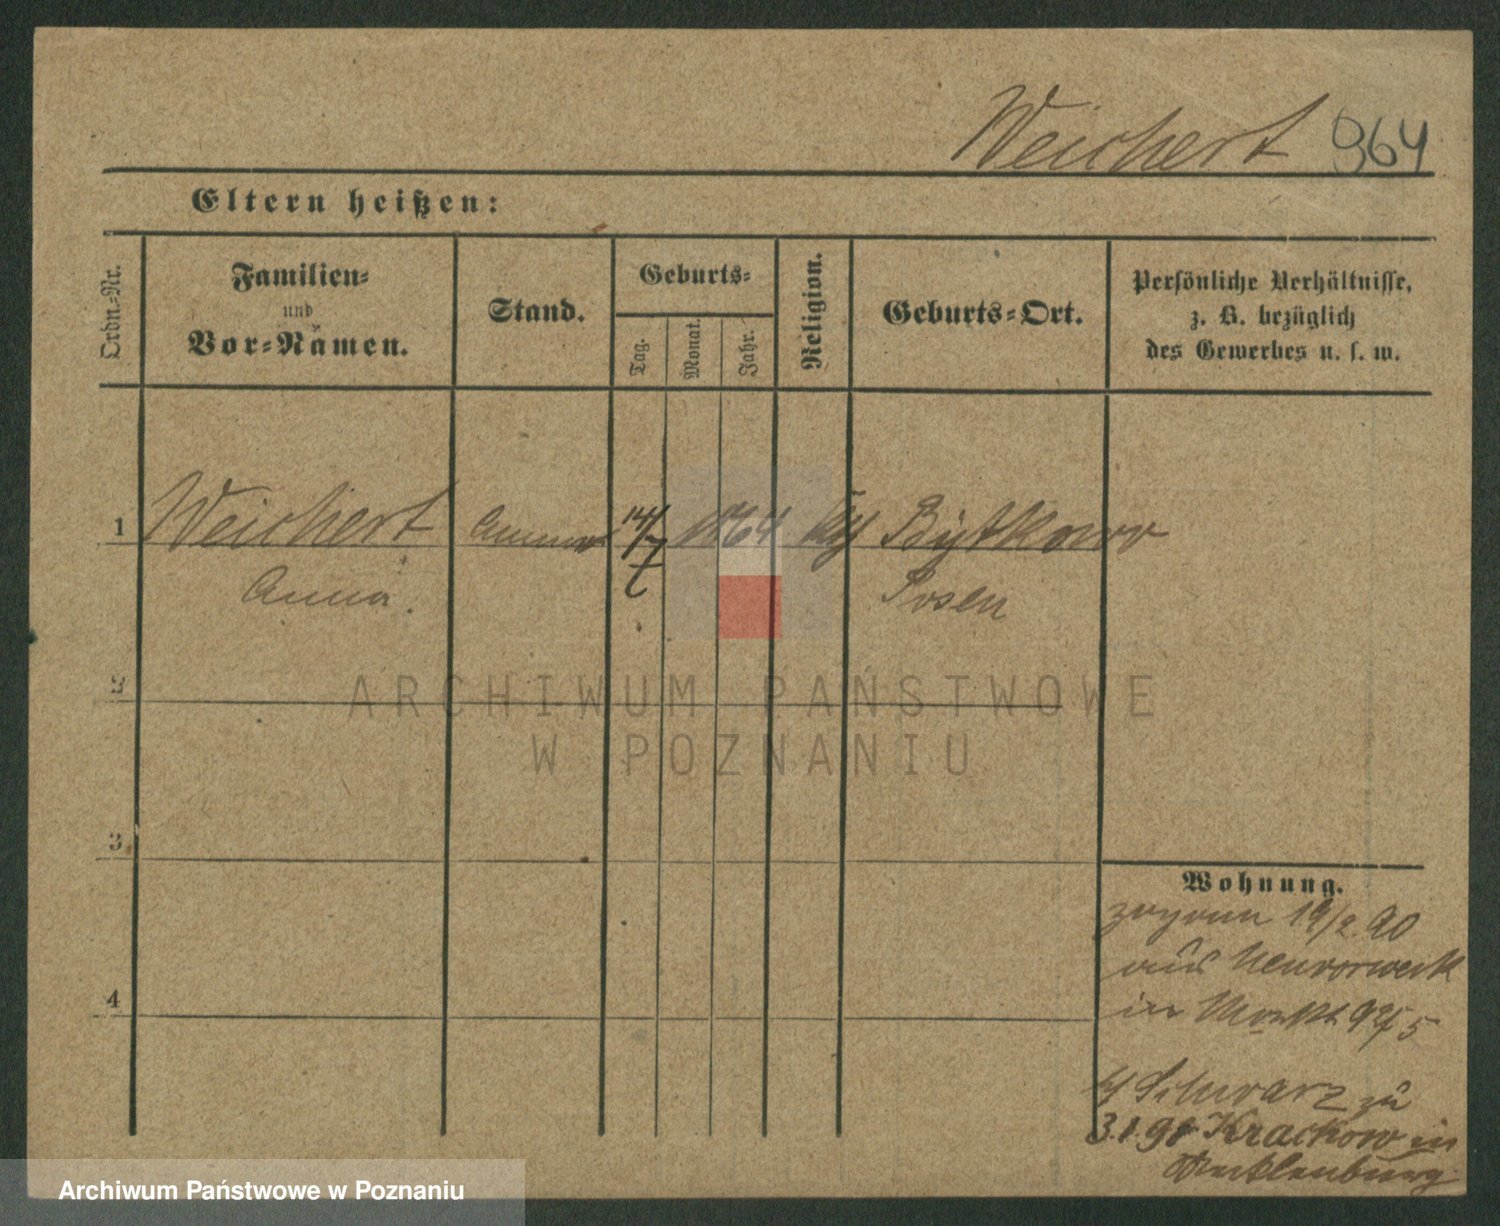 Weichert 964
Eltern heißen:
Ordn.-Nr.
Familien-
und
Vor-Namen.
Stand.
Geburts-
Tag.
Monat.
Jahr.
Religion.
Geburts-Ort.
Persönliche Verhältnisse,
z. B. bezüglich
des Gewerbes u. s. w.
1 Weichert 14/7 1864 Bytkowo
Anna. Posen
2
3
4
Wohnung.
19/2 90
aus Neuvorwerk
in Markt
Schwarz zu
3.1.91 Krackow in
Mecklenburg
ARCHIWUM PAŃSTWOWE
W POZNANIU
Archiwum Państwowe w Poznaniu